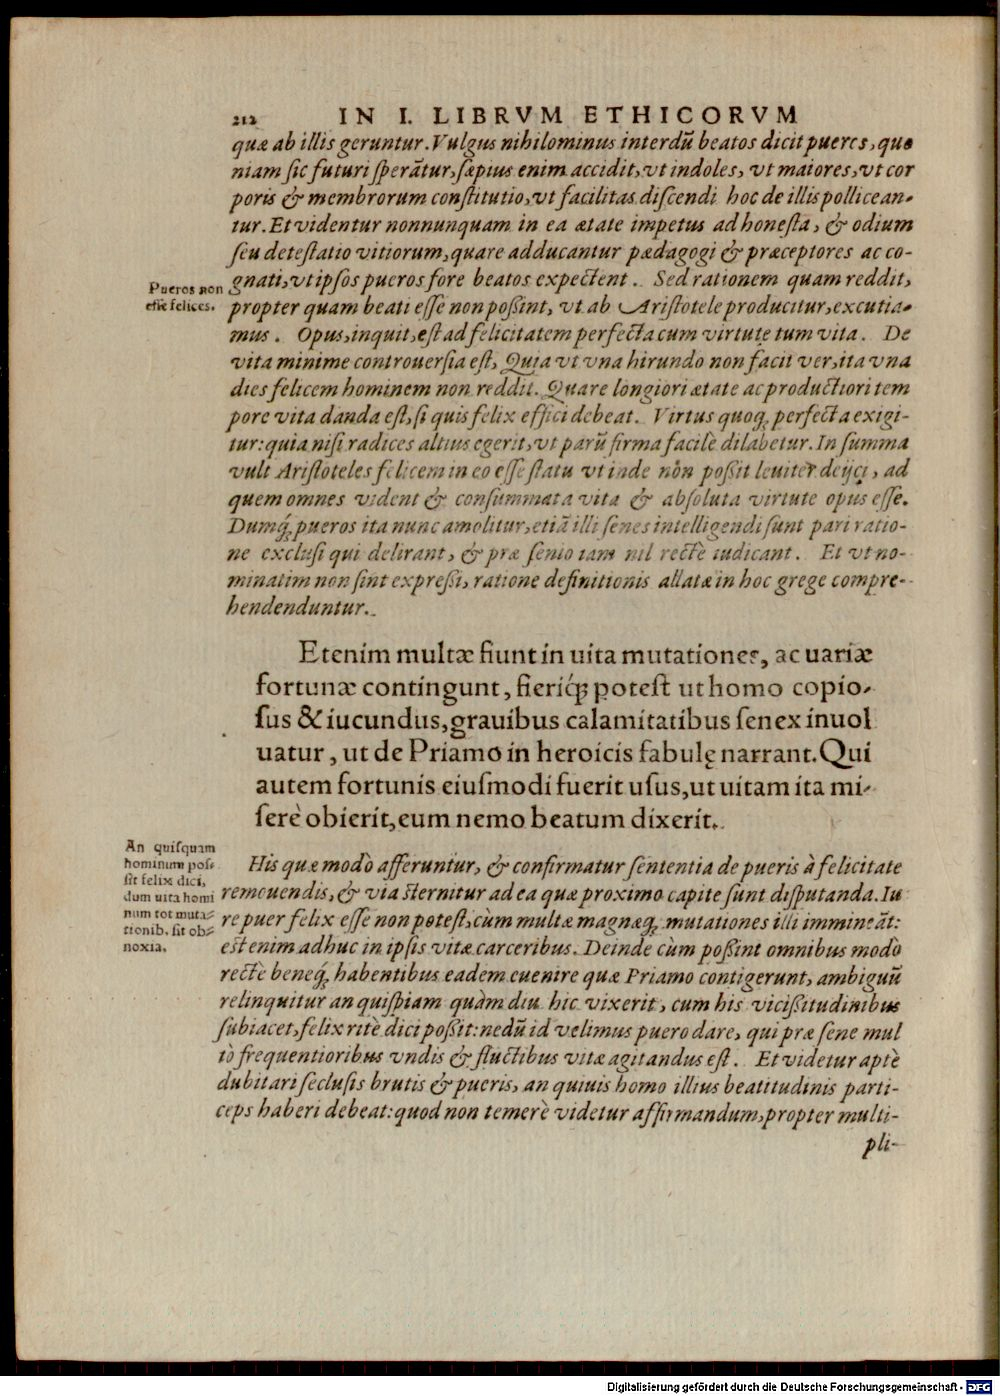 212 IN I. LIBRVM ETHICORVM
quæ ab illis geruntur. Vulgus nihilominus interdũ beatos dicit pueros, quo
niam sic futuri sperãtur, sæpius enim accidit, vt indoles, vt maiores, vt cor
poris & membrorum constitutio, vt facilitas discendi hoc de illis pollicean-
tur. Et videntur nonnunquam in ea ætate impetus ad honesta, & odium
seu detestatio vitiorum, quare adducantur pædagogi & præceptores ac co-
gnati, vt ipsos pueros fore beatos expectent. Sed rationem quam reddit,
Pueros non
esse felices.
propter quam beati esse non possint, vt ab Aristotele producitur, excutia-
mus. Opus, inquit, est ad felicitatem perfecta cum virtute tum vita. De
vita minime controuersia est, Quia vt vna hirundo non facit ver, ita vna
dies felicem hominem non reddit. Quare longiori ætate ac productiori tem
pore vita danda est, si quis felix effici debeat. Virtus quoq; perfecta exigi-
tur: quia nisi radices altius egerit, vt parũ firma facilè dilabetur. In summa
vult Aristoteles felicem in eo esse statu vt inde nòn possit leuiter deijci, ad
quem omnes vident & consummata vita & absoluta virtute opus esse.
Dumq́; pueros ita nunc amolitur, etiã illi senes intelligendi sunt pari ratio-
ne exclusi qui delirant, & præ senio iam nil rectè iudicant. Et vt no-
minatim non sint expressi, ratione definitionis allatæ in hoc grege compre-
hendenduntur.
Etenim multæ fiunt in uita mutationes, ac uariæ
fortunæ contingunt, fieriq́; potest ut homo copio-
sus & iucundus, grauibus calamitatibus senex inuol
uatur, ut de Priamo in heroicis fabulę narrant. Qui
autem fortunis eiusmodi fuerit usus, ut uitam ita mi-
serè obierit, eum nemo beatum dixerit.
An quisquam
hominum pos-
sit felix dici,
dum uita homi
num tot muta-
tionib. sit ob-
noxia.
His quæ modò afferuntur, & confirmatur sententia de pueris à felicitate
remouendis, & via sternitur ad ea quæ proximo capite sunt disputanda. Iu
re puer felix esse non potest, cùm multæ magnæq; mutationes illi immineãt:
est enim adhuc in ipsis vitæ carceribus. Deinde cùm possint omnibus modò
rectè beneq́; habentibus eadem euenire quæ Priamo contigerunt, ambiguũ
relinquitur an quispiam quàm diu hic vixerit, cum his vicissitudinibus
subiacet, felix ritè dici possit: nedũ id velimus puero dare, qui præ sene mul
tò frequentioribus vndis & fluctibus vitæ agitandus est. Et videtur aptè
dubitari seclusis brutis & pueris, an quiuis homo illius beatitudinis parti-
ceps haberi debeat: quod non temerè videtur affirmandum, propter multi-
pli-
Digitalisierung gefördert durch die Deutsche Forschungsgemeinschaft - DFG